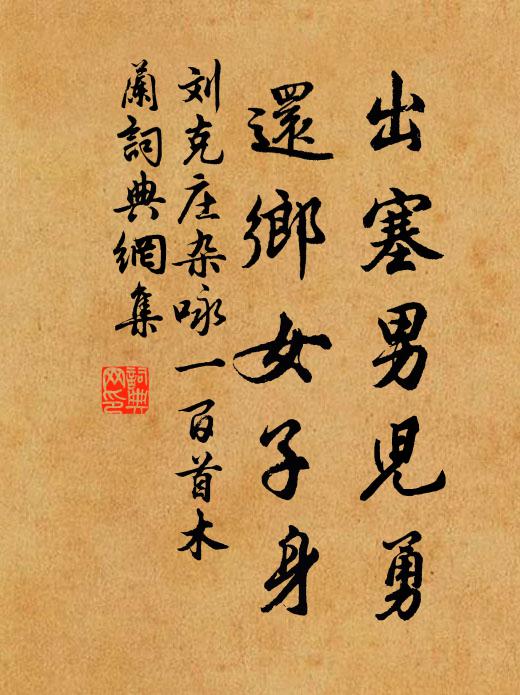 出塞男兒勇
還鄉女子身
刘克庄杂咏一百首木
蘭詞典網集
詞典
网印